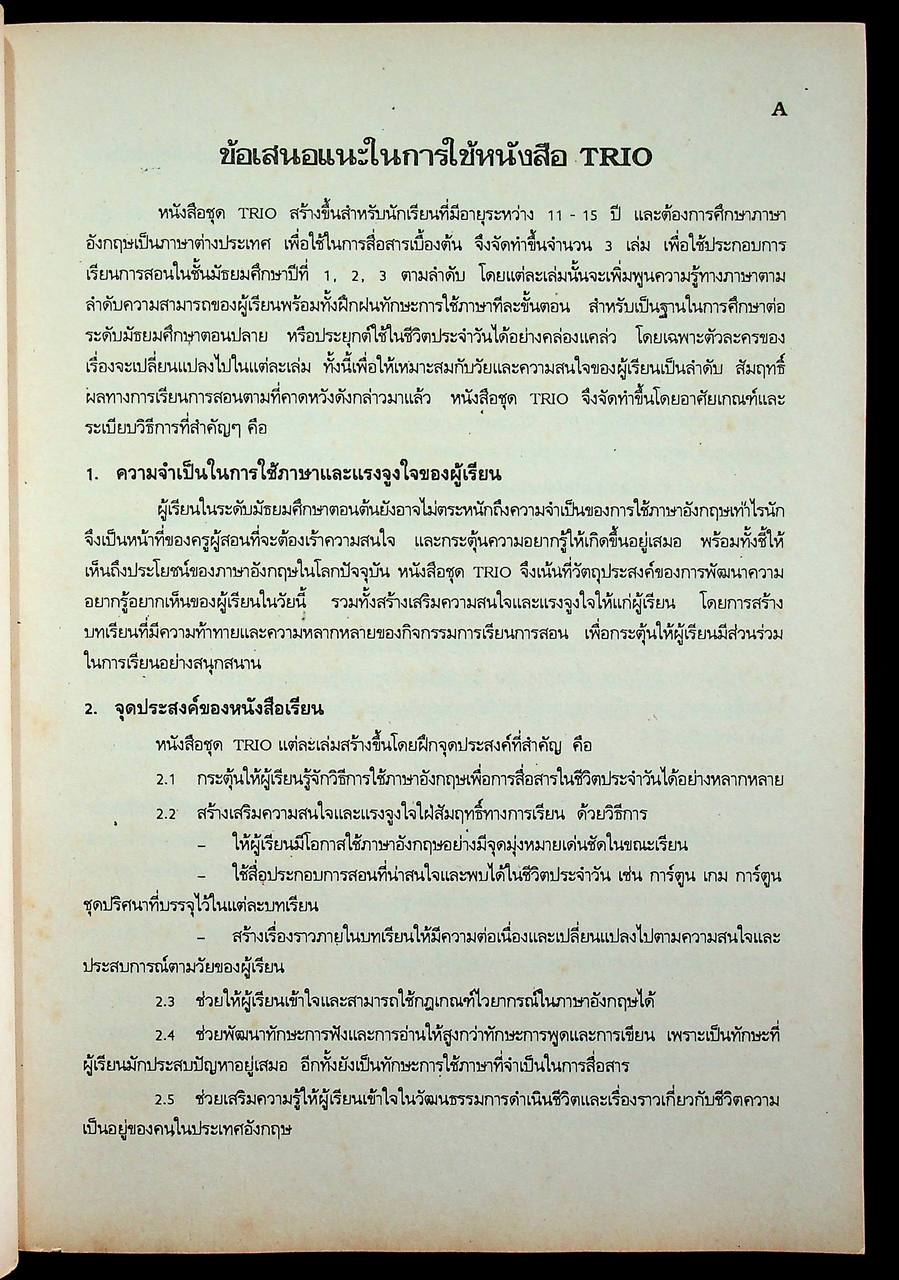 A
ข้อเสนอแนะในการใช้หนังสือ TRIO
หนังสือชุด TRIO สร้างขึ้นสำหรับนักเรียนที่มีอายุระหว่าง 11 - 15 ปี และต้องการศึกษาภาษา
อังกฤษเป็นภาษาต่างประเทศ เพื่อใช้ในการสื่อสารเบื้องต้น จึงจัดทำขึ้นจำนวน 3 เล่ม เพื่อใช้ประกอบการ
เรียนการสอนในชั้นมัธยมศึกษาปีที่ 1, 2, 3 ตามลำดับ โดยแต่ละเล่มนั้นจะเพิ่มพูนความรู้ทางภาษาตาม
ลำดับความสามารถของผู้เรียนพร้อมทั้งฝึกฝนทักษะการใช้ภาษาทีละขั้นตอน สำหรับเป็นฐานในการศึกษาต่อ
ระดับมัธยมศึกษาตอนปลาย หรือประยุกต์ใช้ในชีวิตประจำวันได้อย่างคล่องแคล่ว โดยเฉพาะตัวละครของ
เรื่องจะเปลี่ยนแปลงไปในแต่ละเล่ม ทั้งนี้เพื่อให้เหมาะสมกับวัยและความสนใจของผู้เรียนเป็นลำดับ สัมฤทธิ์
ผลทางการเรียนการสอนตามที่คาดหวังดังกล่าวมาแล้ว หนังสือชุด TRIO จึงจัดทำขึ้นโดยอาศัยเกณฑ์และ
ระเบียบวิธีการที่สำคัญๆ คือ
1. ความจำเป็นในการใช้ภาษาและแรงจูงใจของผู้เรียน
ผู้เรียนในระดับมัธยมศึกษาตอนต้นยังอาจไม่ตระหนักถึงความจำเป็นของการใช้ภาษาอังกฤษเท่าไรนัก
จึงเป็นหน้าที่ของครูผู้สอนที่จะต้องเร้าความสนใจ และกระตุ้นความอยากรู้ให้เกิดขึ้นอยู่เสมอ พร้อมทั้งชี้ให้
เห็นถึงประโยชน์ของภาษาอังกฤษในโลกปัจจุบัน หนังสือชุด TRIO จึงเน้นที่วัตถุประสงค์ของการพัฒนาความ
อยากรู้อยากเห็นของผู้เรียนในวัยนี้ รวมทั้งสร้างเสริมความสนใจและแรงจูงใจให้แก่ผู้เรียน โดยการสร้าง
บทเรียนที่มีความท้าทายและความหลากหลายของกิจกรรมการเรียนการสอน เพื่อกระตุ้นให้ผู้เรียนมีส่วนร่วม
ในการเรียนอย่างสนุกสนาน
2. จุดประสงค์ของหนังสือเรียน
หนังสือชุด TRIO แต่ละเล่มสร้างขึ้นโดยฝึกจุดประสงค์ที่สำคัญ คือ
2.1 กระตุ้นให้ผู้เรียนรู้จักวิธีการใช้ภาษาอังกฤษเพื่อการสื่อสารในชีวิตประจำวันได้อย่างหลากหลาย
2.2 สร้างเสริมความสนใจและแรงจูงใจใฝ่สัมฤทธิ์ทางการเรียน ด้วยวิธีการ
– ให้ผู้เรียนมีโอกาสใช้ภาษาอังกฤษอย่างมีจุดมุ่งหมายเด่นชัดในขณะเรียน
– ใช้สื่อประกอบการสอนที่น่าสนใจและพบได้ในชีวิตประจำวัน เช่น การ์ตูน เกม การ์ตูน
ชุดปริศนาที่บรรจุไว้ในแต่ละบทเรียน
– สร้างเรื่องราวภายในบทเรียนให้มีความต่อเนื่องและเปลี่ยนแปลงไปตามความสนใจและ
ประสบการณ์ตามวัยของผู้เรียน
2.3 ช่วยให้ผู้เรียนเข้าใจและสามารถใช้กฎเกณฑ์ไวยากรณ์ในภาษาอังกฤษได้
2.4 ช่วยพัฒนาทักษะการฟังและการอ่านให้สูงกว่าทักษะการพูดและการเขียน เพราะเป็นทักษะที่
ผู้เรียนมักประสบปัญหาอยู่เสมอ อีกทั้งยังเป็นทักษะการใช้ภาษาที่จำเป็นในการสื่อสาร
2.5 ช่วยเสริมความรู้ให้ผู้เรียนเข้าใจในวัฒนธรรมการดำเนินชีวิตและเรื่องราวเกี่ยวกับชีวิตความ
เป็นอยู่ของคนในประเทศอังกฤษ